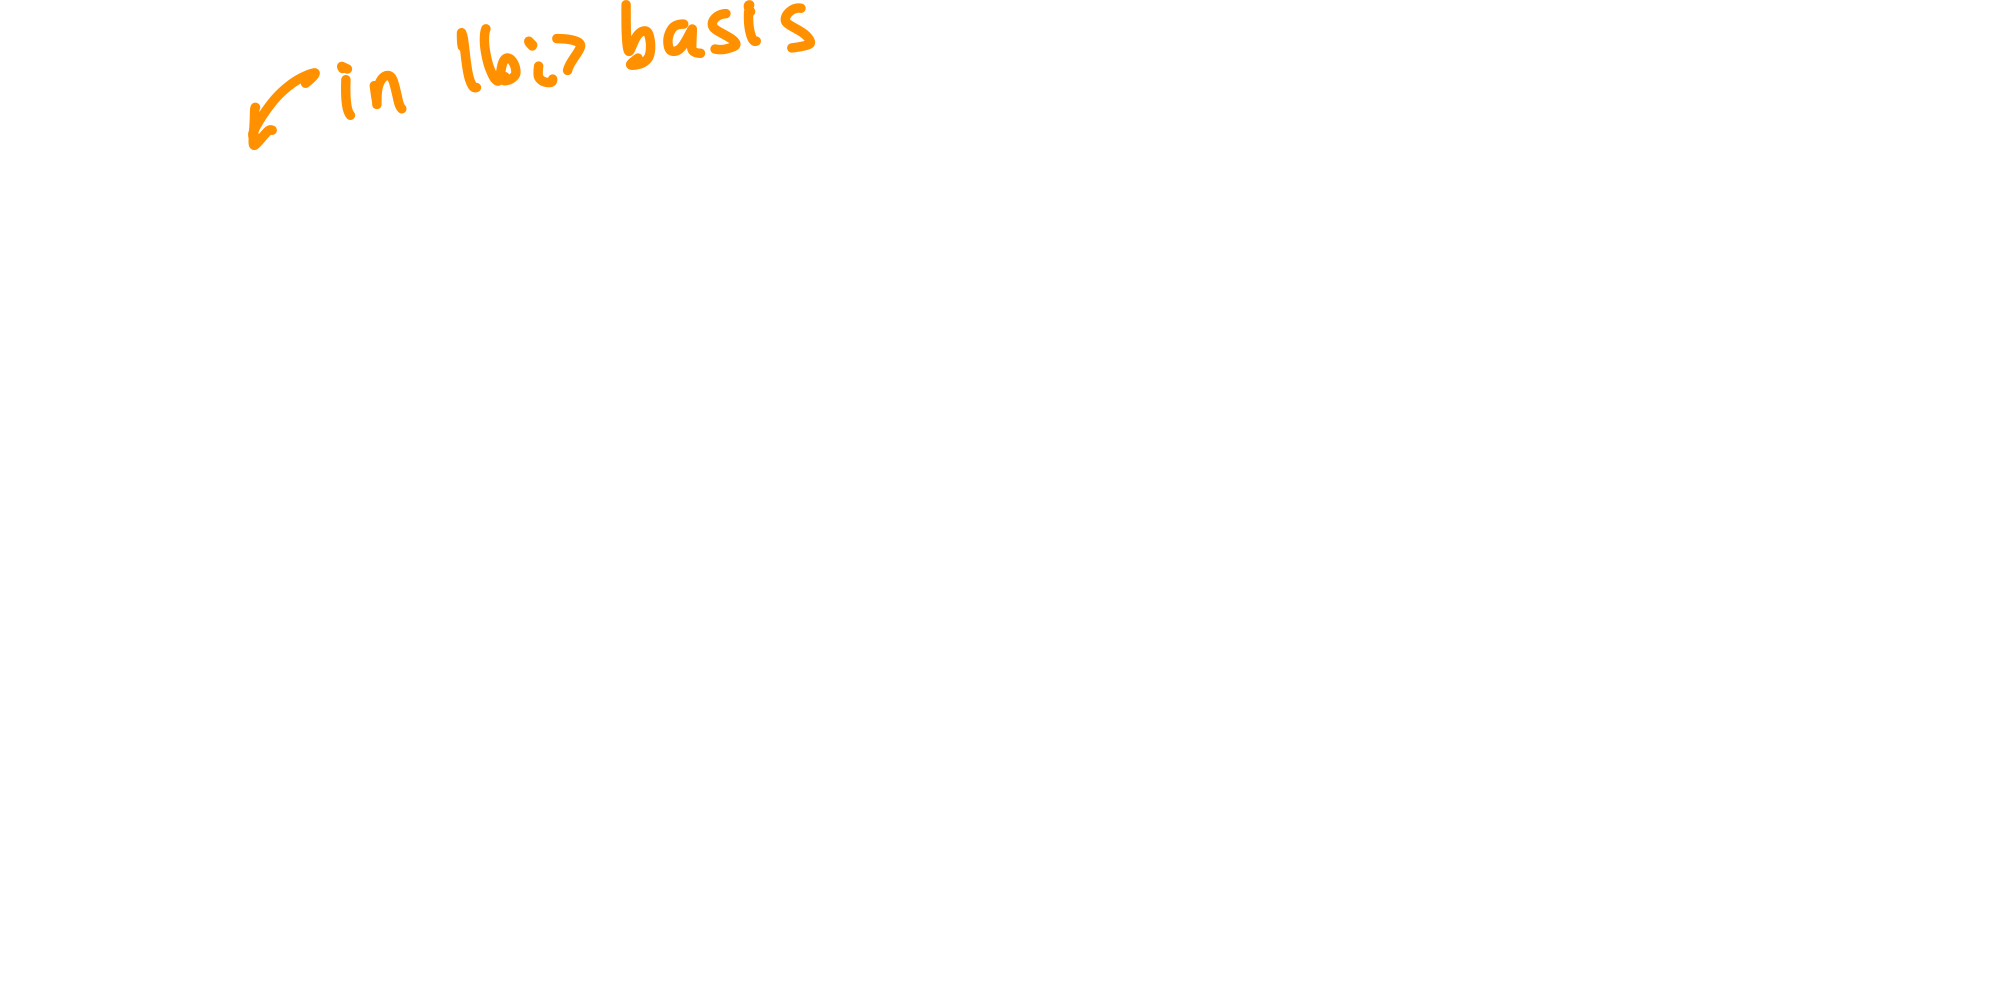 in |bi> basis